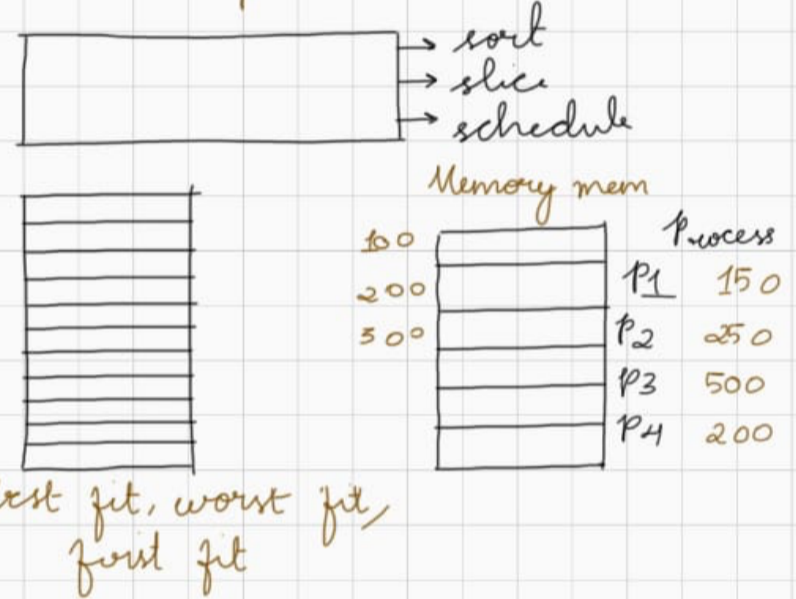 sort
slice
schedule
Memory mem
100
Process
200
P1 150
300
P2 250
P3 500
P4 200
fit, worst fit,
first fit